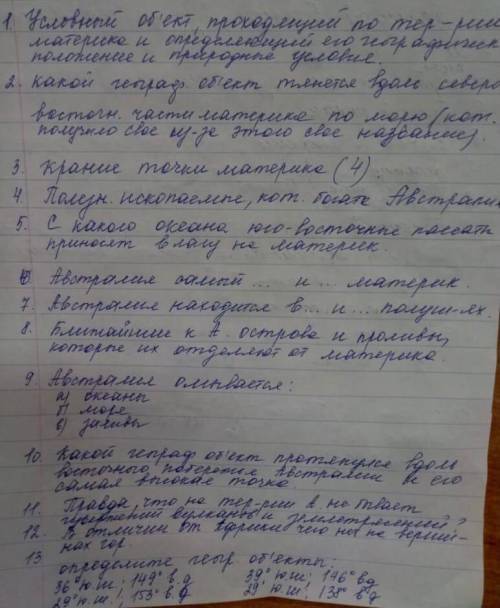 1. Условный об'ект, проходящий по тер-рии
материка и определяющий его географическ.
положение и природные условия.
2. Какой географ. об'ект тянется вдоль северо
восточн. части материка по морю (кот.
получило свое из-за этого свое название).
3. Крание точки материка (4).
4. Полезн. ископаемые, кот. богата Австралия
5. С какого океана юго-восточные пассаты
приносят влагу на материк.
6. Австралия самый ... и ... материк.
7. Австралия находится в ... и ... полуш-ях.
8. Ближайшие к А. острова и проливы,
которые их отделяют от материка.
9. Австралия омывается:
а) океаны
б) моря
в) заливы
10. Какой географ об'ект протянулся вдоль
восточного побережья Австралии и его
самая высокая точка
11. Правда, что на тер-рии А. не бывает
извержений вулканов и землетрясений?
12. В отличии от Африки чего нет на
нах гор.
13. определите геогр. об'екты:
36° ю.ш; 149° в.д 39° ю.ш; 146° в.д
29° ю.ш.; 153° в.д 29° ю.ш; 135° в.д